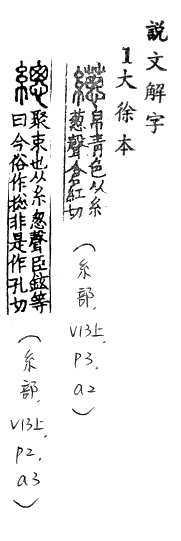 說文解字
1大徐本
繱帛青色从糸
蔥聲倉紅切
（糸部,V13上,P3,a2）
總聚束也从糸悤聲臣鉉等
曰今俗作揔非是作孔切
（糸部,V13上,P2,a3）